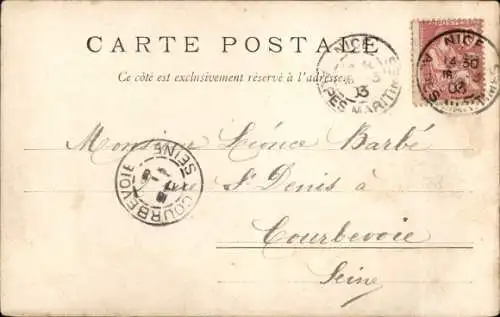 CARTE POSTALE
Ce côté est exclusivement réservé à l'adresse
NICE
16 3
03
ALPES MARITIMES
NICE
16
03
Monsieur Léonce Barbé
rue St Denis à
Courbevoie
Seine
COURBEVOIE
SEINE